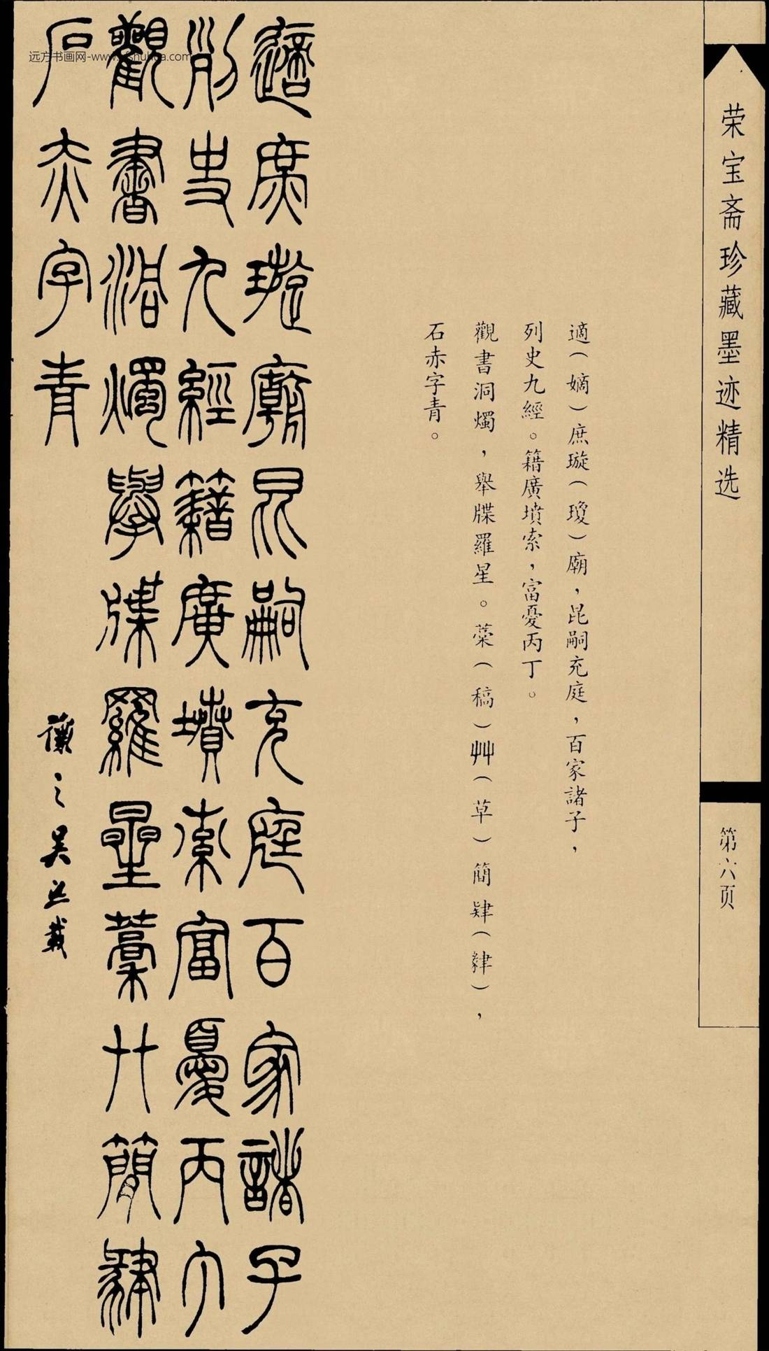 荣宝斋珍藏墨迹精选
第六页
適（嫡）庶璇（瓊）廟，昆嗣充庭，百家諸子，
列史九經。籍廣墳索，富憂丙丁。
觀書洞燭，舉牒羅星。藁（稿）艸（草）簡肄（），
石赤字青。
適庶璇廟昆嗣充庭百家諸子
列史九經籍廣墳索富憂丙丁
觀書洞燭舉牒羅星藁艸簡肄
石赤字青
讓之吳熙載
远方书画网